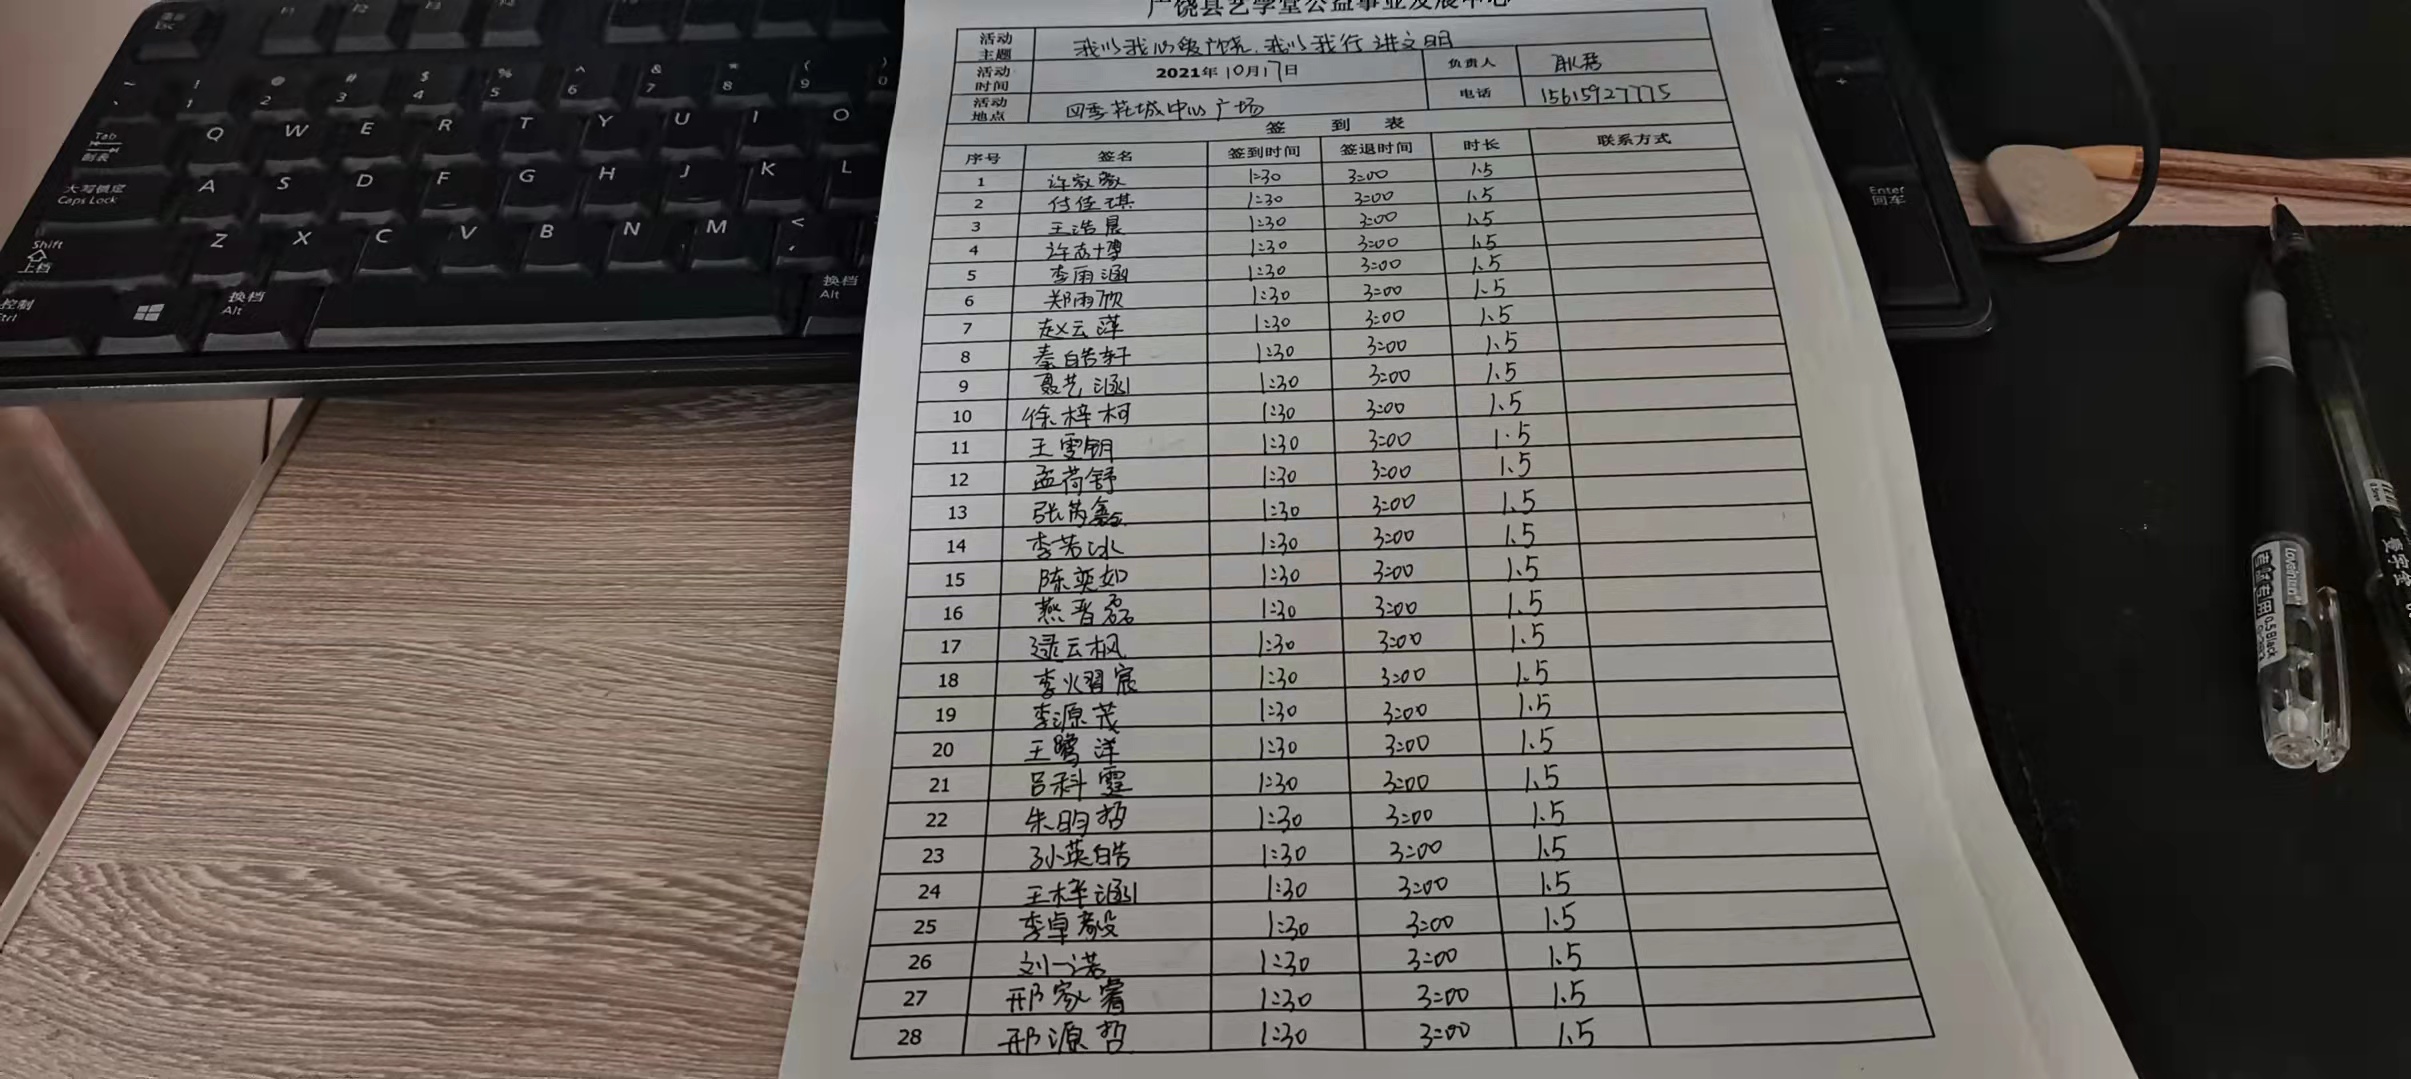 广饶县艺学堂公益事业发展中心
活动主题 我以我心爱广饶，我以我行讲文明
活动时间 2021年10月17日 负责人
活动地点 四季花城中心广场 电话 15615927775
签到表
序号 签名 签到时间 签退时间 时长 联系方式
1 许家豪 1:30 3:00 1.5
2 付佳琪 1:30 3:00 1.5
3 王浩晨 1:30 3:00 1.5
4 许志博 1:30 3:00 1.5
5 李雨涵 1:30 3:00 1.5
6 郑雨欣 1:30 3:00 1.5
7 赵云萍 1:30 3:00 1.5
8 秦皓轩 1:30 3:00 1.5
9 聂艺涵 1:30 3:00 1.5
10 徐梓柯 1:30 3:00 1.5
11 王雯钥 1:30 3:00 1.5
12 孟荷舒 1:30 3:00 1.5
13 张芮鑫 1:30 3:00 1.5
14 李若冰 1:30 3:00 1.5
15 陈奕如 1:30 3:00 1.5
16 燕晋磊 1:30 3:00 1.5
17 逯云枫 1:30 3:00 1.5
18 李熠宸 1:30 3:00 1.5
19 李源茂 1:30 3:00 1.5
20 王鹭洋 1:30 3:00 1.5
21 吕科霆 1:30 3:00 1.5
22 朱昀哲 1:30 3:00 1.5
23 孙英皓 1:30 3:00 1.5
24 王梓涵 1:30 3:00 1.5
25 李卓毅 1:30 3:00 1.5
26 刘一诺 1:30 3:00 1.5
27 邢家睿 1:30 3:00 1.5
28 邢源哲 1:30 3:00 1.5
Esc
F1 F2 F3 F4
~ ! @ # $ % ^ & * ( )
` 1 2 3 4 5 6 7 8 9 0
Tab Q W E R T Y U I O
大写锁定 Caps Lock A S D F G H J K L
Shift 上档 Z X C V B N M < ,
控制 Ctrl 换档 Alt 换档 Alt
Enter 回车
0.5 Black